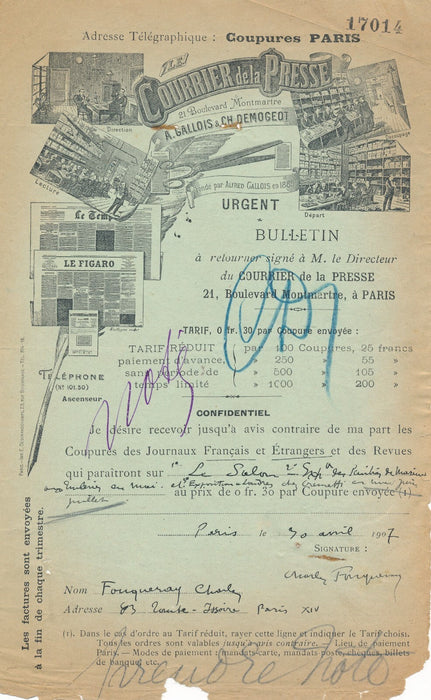 17014
Adresse Télégraphique : Coupures PARIS
LE
COURRIER de la PRESSE
21 Boulevard Montmartre
A. GALLOIS & CH. DEMOGEOT
Direction
Découpage
Lecture
Départ
Fondé par ALFRED GALLOIS en 188
Le Temps
LE FIGARO
URGENT
BULLETIN
à retourner signé à M. le Directeur
du COURRIER de la PRESSE
21, Boulevard Montmartre, à PARIS
TARIF, 0 fr. 30 par Coupure envoyée :
TARIF RÉDUIT par 100 Coupures, 25 francs
paiement d'avance, » 250 » 55 »
sans période de » 500 » 105 »
temps limité » 1000 » 200 »
TÉLÉPHONE
(N° 101.50)
Ascenseur
CONFIDENTIEL
Je désire recevoir jusqu'à avis contraire de ma part les
Coupures des Journaux Français et Étrangers et des Revues
qui paraîtront sur 1° Le Salon des Peintres de Marine
en mai et Exposition Londres en juin
juillet au prix de 0 fr. 30 par Coupure envoyée (1)
Paris le 30 avril 1907
SIGNATURE :
Charles Fouqueray
Nom Fouqueray Charles
Adresse 83 Tombe-Issoire Paris XIV
(1). Dans le cas d'ordre au Tarif réduit, rayer cette ligne et indiquer le Tarif choisi.
Tous les ordres sont valables jusqu'à avis contraire. — Lieu de paiement
Paris. — Modes de paiement : mandats-carte, mandats-poste, chèques, billets
de banque, etc.
prendre Note
Les factures sont envoyées
à la fin de chaque trimestre.